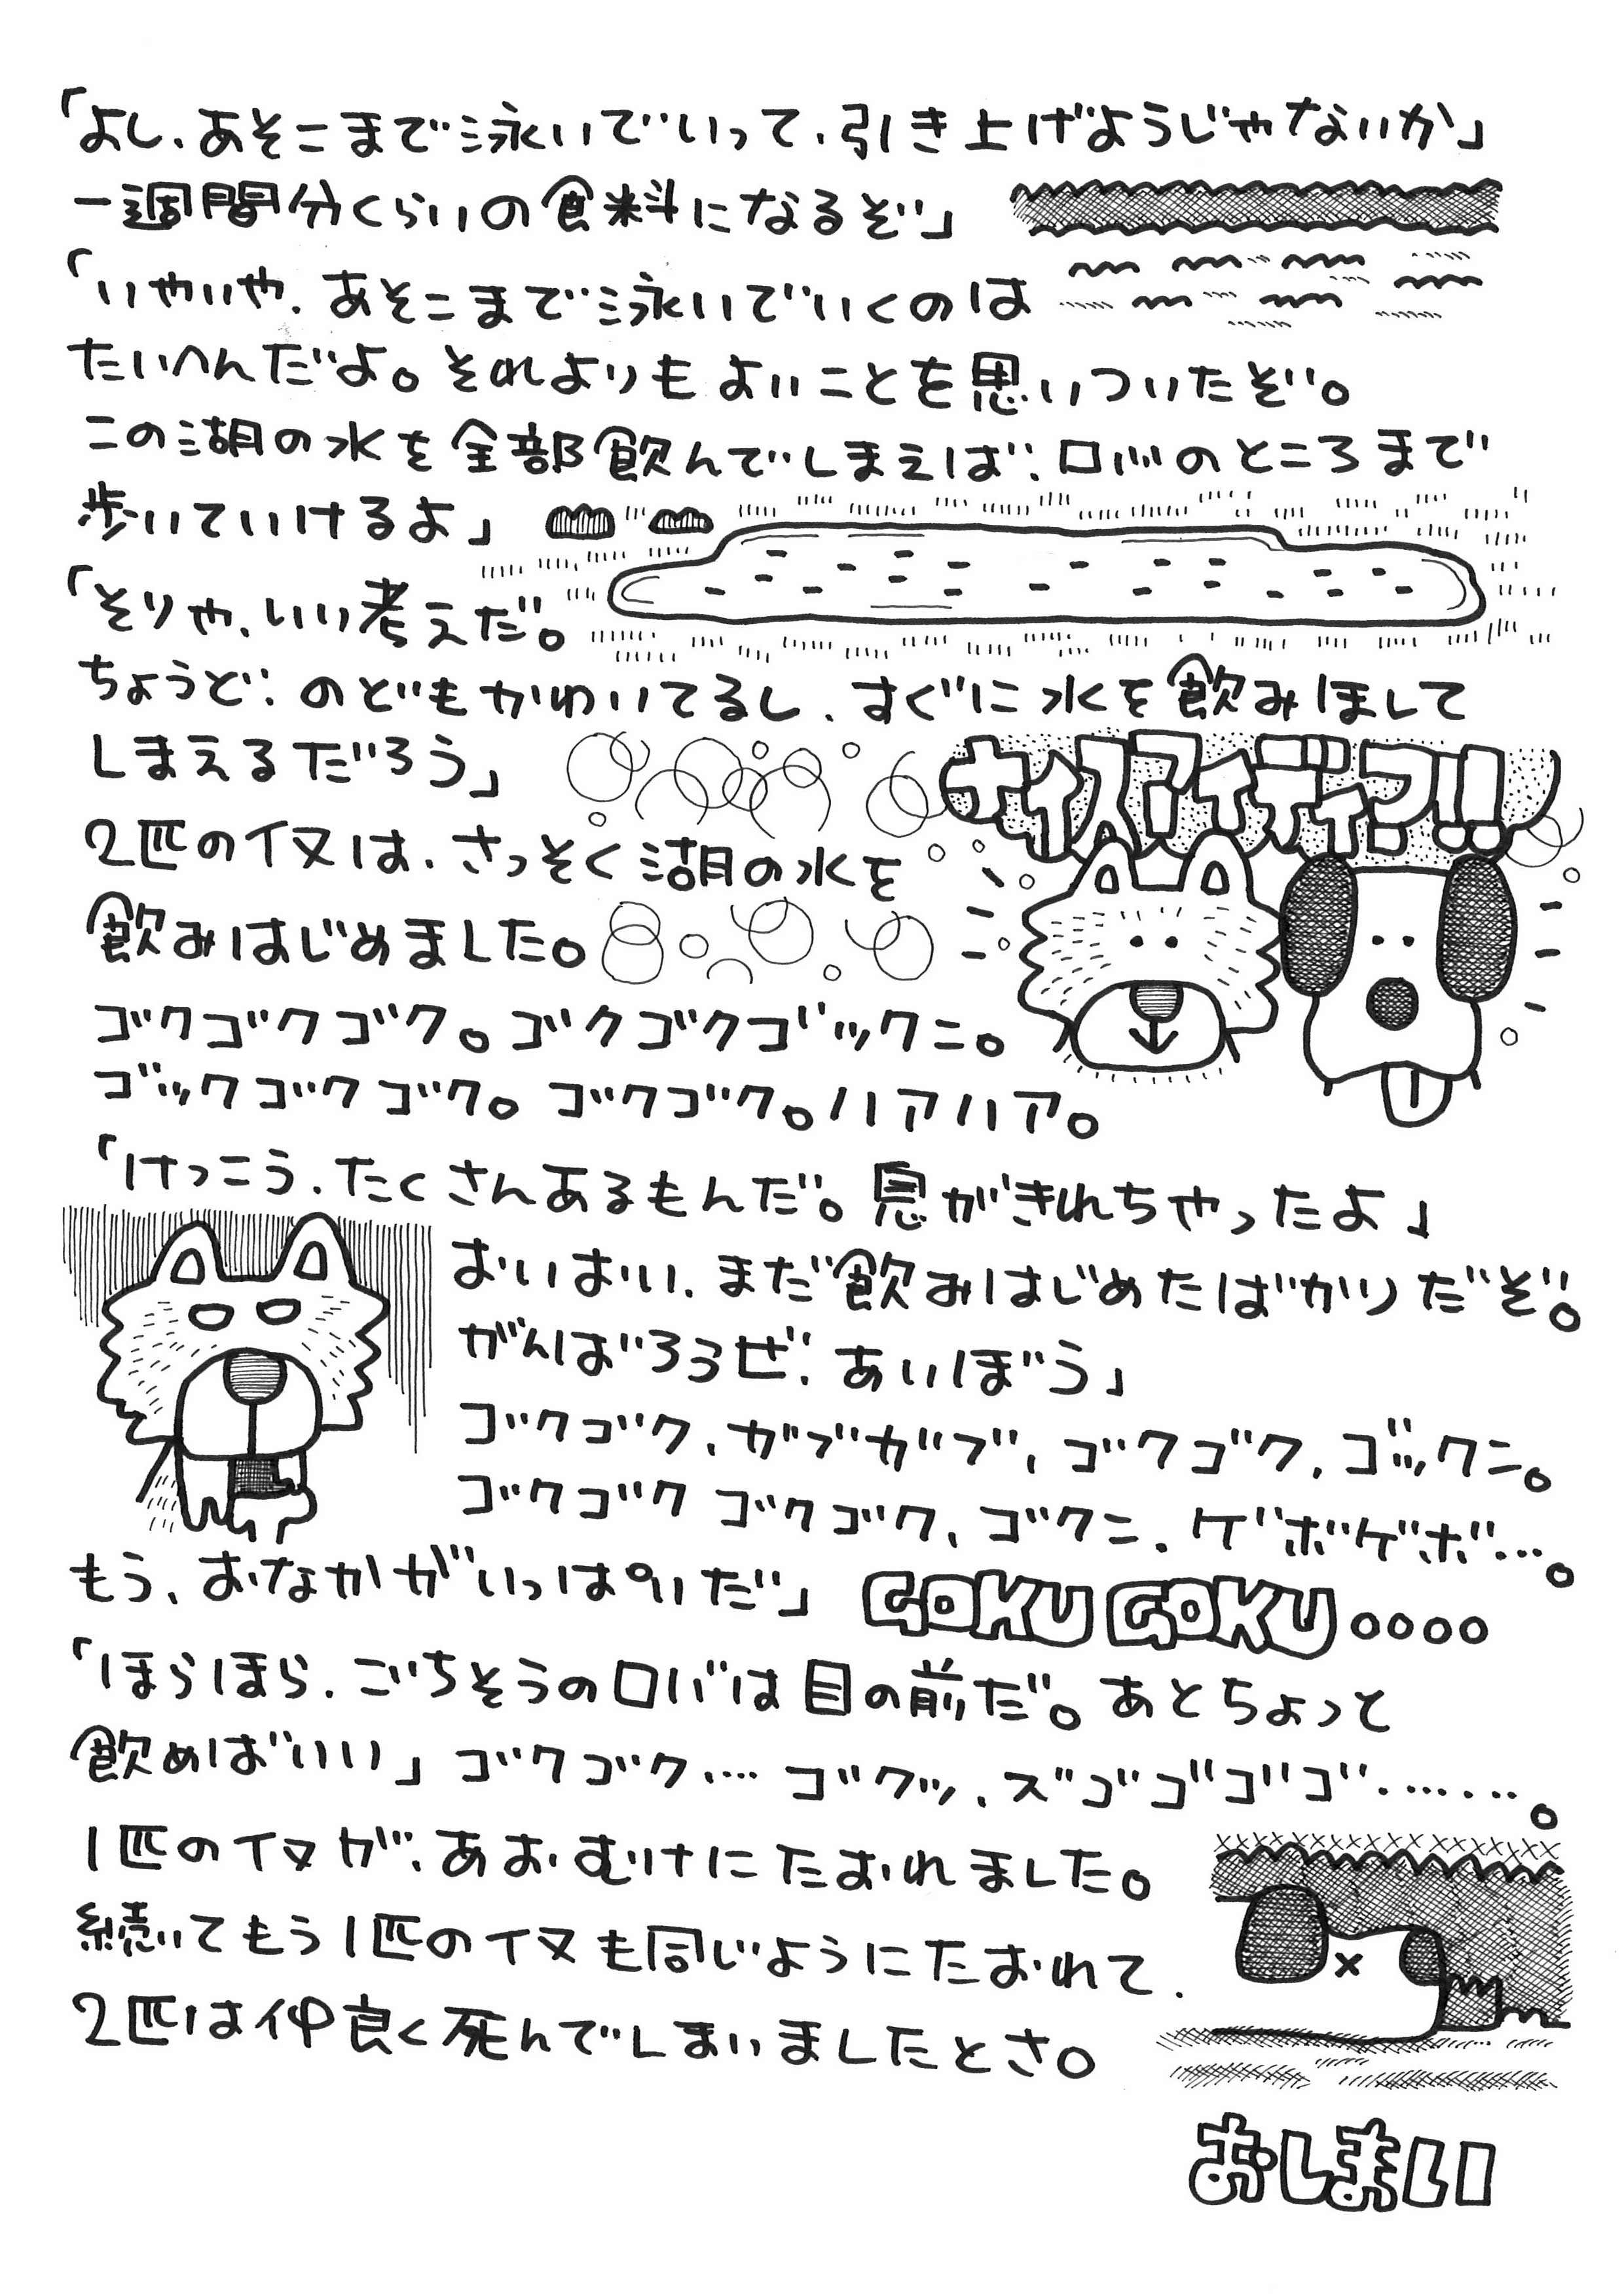 「よし、あそこまで泳いでいって、引き上げようじゃないか」
一週間分くらいの食料になるぞ」
「いやいや、あそこまで泳いでいくのは
たいへんだよ。それよりもよいことを思いついたぞ。
この湖の水を全部飲んでしまえば、ロバのところまで
歩いていけるよ」
「そりゃ、いい考えだ。
ちょうど、のどもかわいてるし、すぐに水を飲みほして
しまえるだろう」
ナイスアイディア!!
2匹のイヌは、さっそく湖の水を
飲みはじめました。
ゴクゴクゴク。ゴクゴクゴックニ。
ゴックゴクゴク。ゴクゴク。ハアハア。
「けっこう、たくさんあるもんだ。息がきれちゃったよ」
おいおい、まだ飲みはじめたばかりだぞ。
がんばろうぜ、あいぼう」
ゴクゴク、ガブガブ、ゴクゴク、ゴックニ。
ゴクゴクゴクゴク、ゴクニ、ゲボゲボ…。
もう、おなかがいっぱいだ」
GOKU GOKU。。。。
「ほらほら、ごちそうのロバは目の前だ。あとちょっと
飲めばいい」ゴクゴク…ゴクッ、ズゴゴゴゴ……。
1匹のイヌが、あおむけにたおれました。
続いてもう1匹のイヌも同じようにたおれて、
2匹は仲良く死んでしまいましたとさ。
おしまい